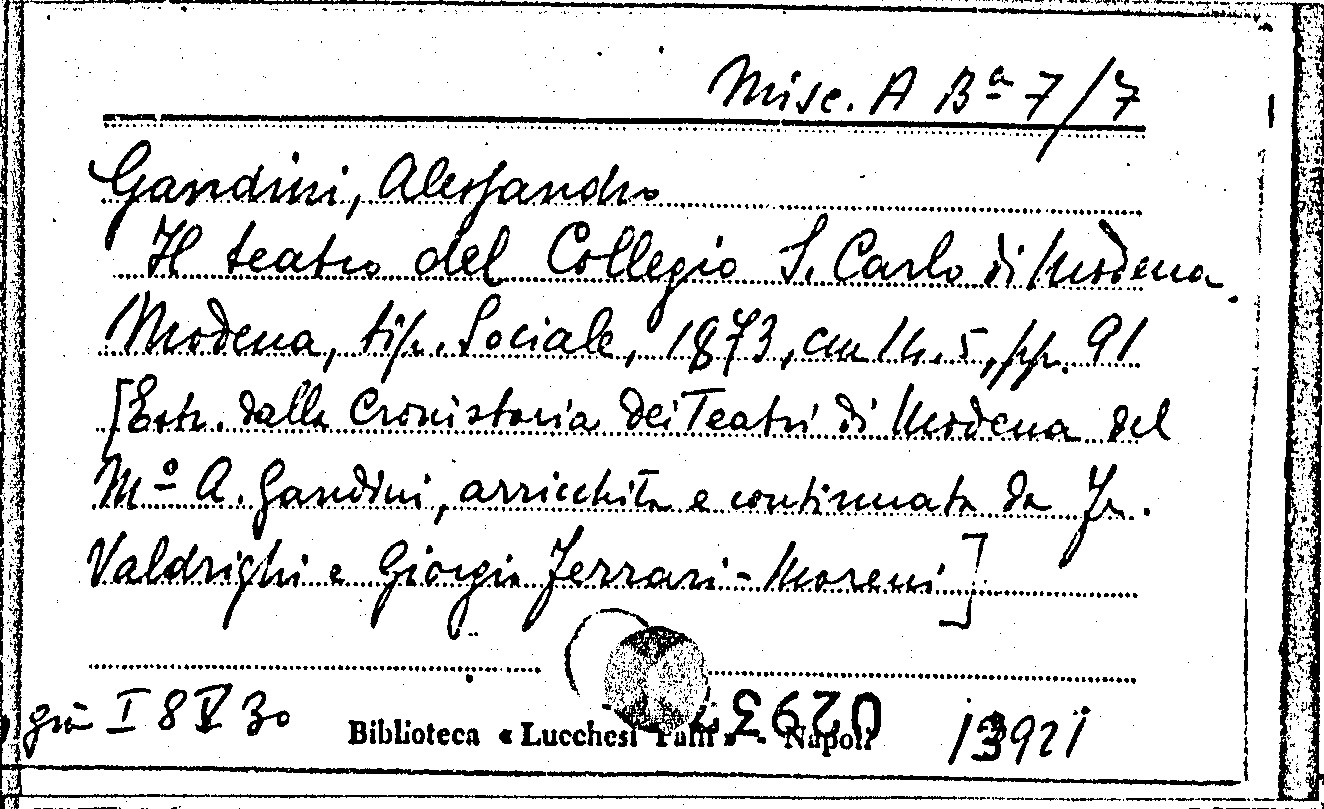 Misc. A Bª 7/7
Gandini, Alessandro
Il teatro del Collegio S. Carlo di Modena.
Modena, tip. Sociale, 1873, cm 14.5, pp. 91
[Estr. dalla Cronistoria dei Teatri di Modena del
Mº A. Gandini, arricchita e continuata da Fr.
Valdrighi e Giorgio Ferrari-Moreni]
già I 8 V 30
Biblioteca « Lucchesi Palli » - Napoli
13921